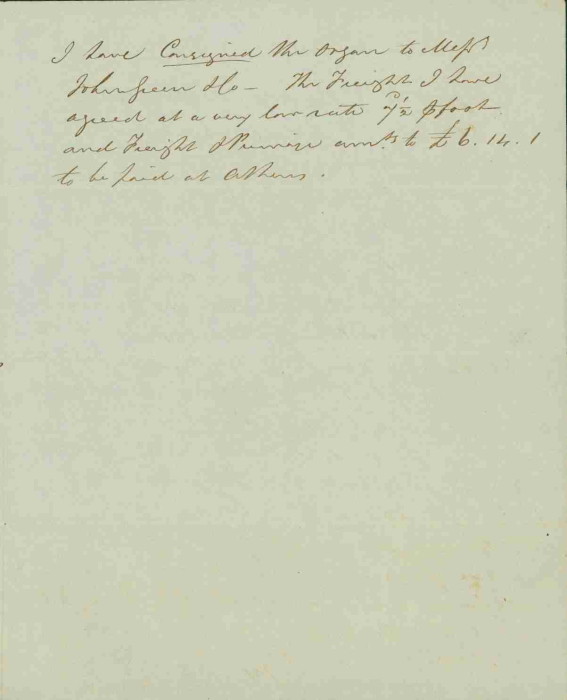 I have Consigned the Organ to Messrs
John Green & Co – The Freight I have
agreed at a very low rate 7½ ⅌ foot
and Freight & Primage amts to £6.14.1
to be paid at Athens.